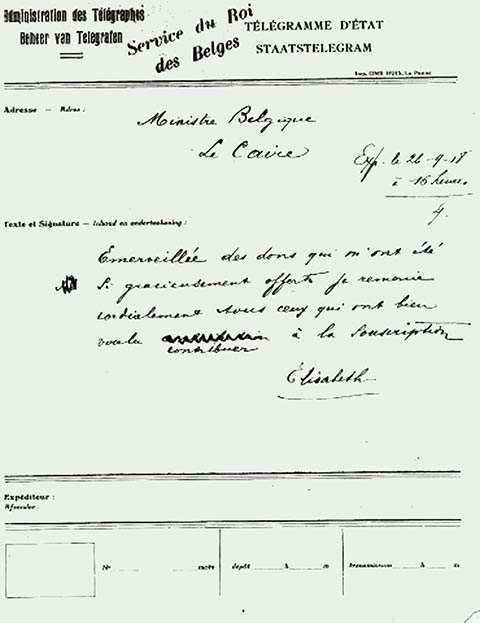 Administration des Télégraphes
Beheer van Telegrafen
Service du Roi
des Belges
TÉLÉGRAMME D'ÉTAT
STAATSTELEGRAM
Adresse — Adres :
Ministre Belgique
Le Caire
Exp. le 26-9-18
à 16 heures
Texte et Signature — Inhoud en onderteekening :
Emerveillée des dons qui m'ont été
si gracieusement offerts je remercie
cordialement tous ceux qui ont bien
voulu à la Souscription
contribuer
Élisabeth
Expéditeur :
Afzender :
N° mots dépôt h m transmission h m